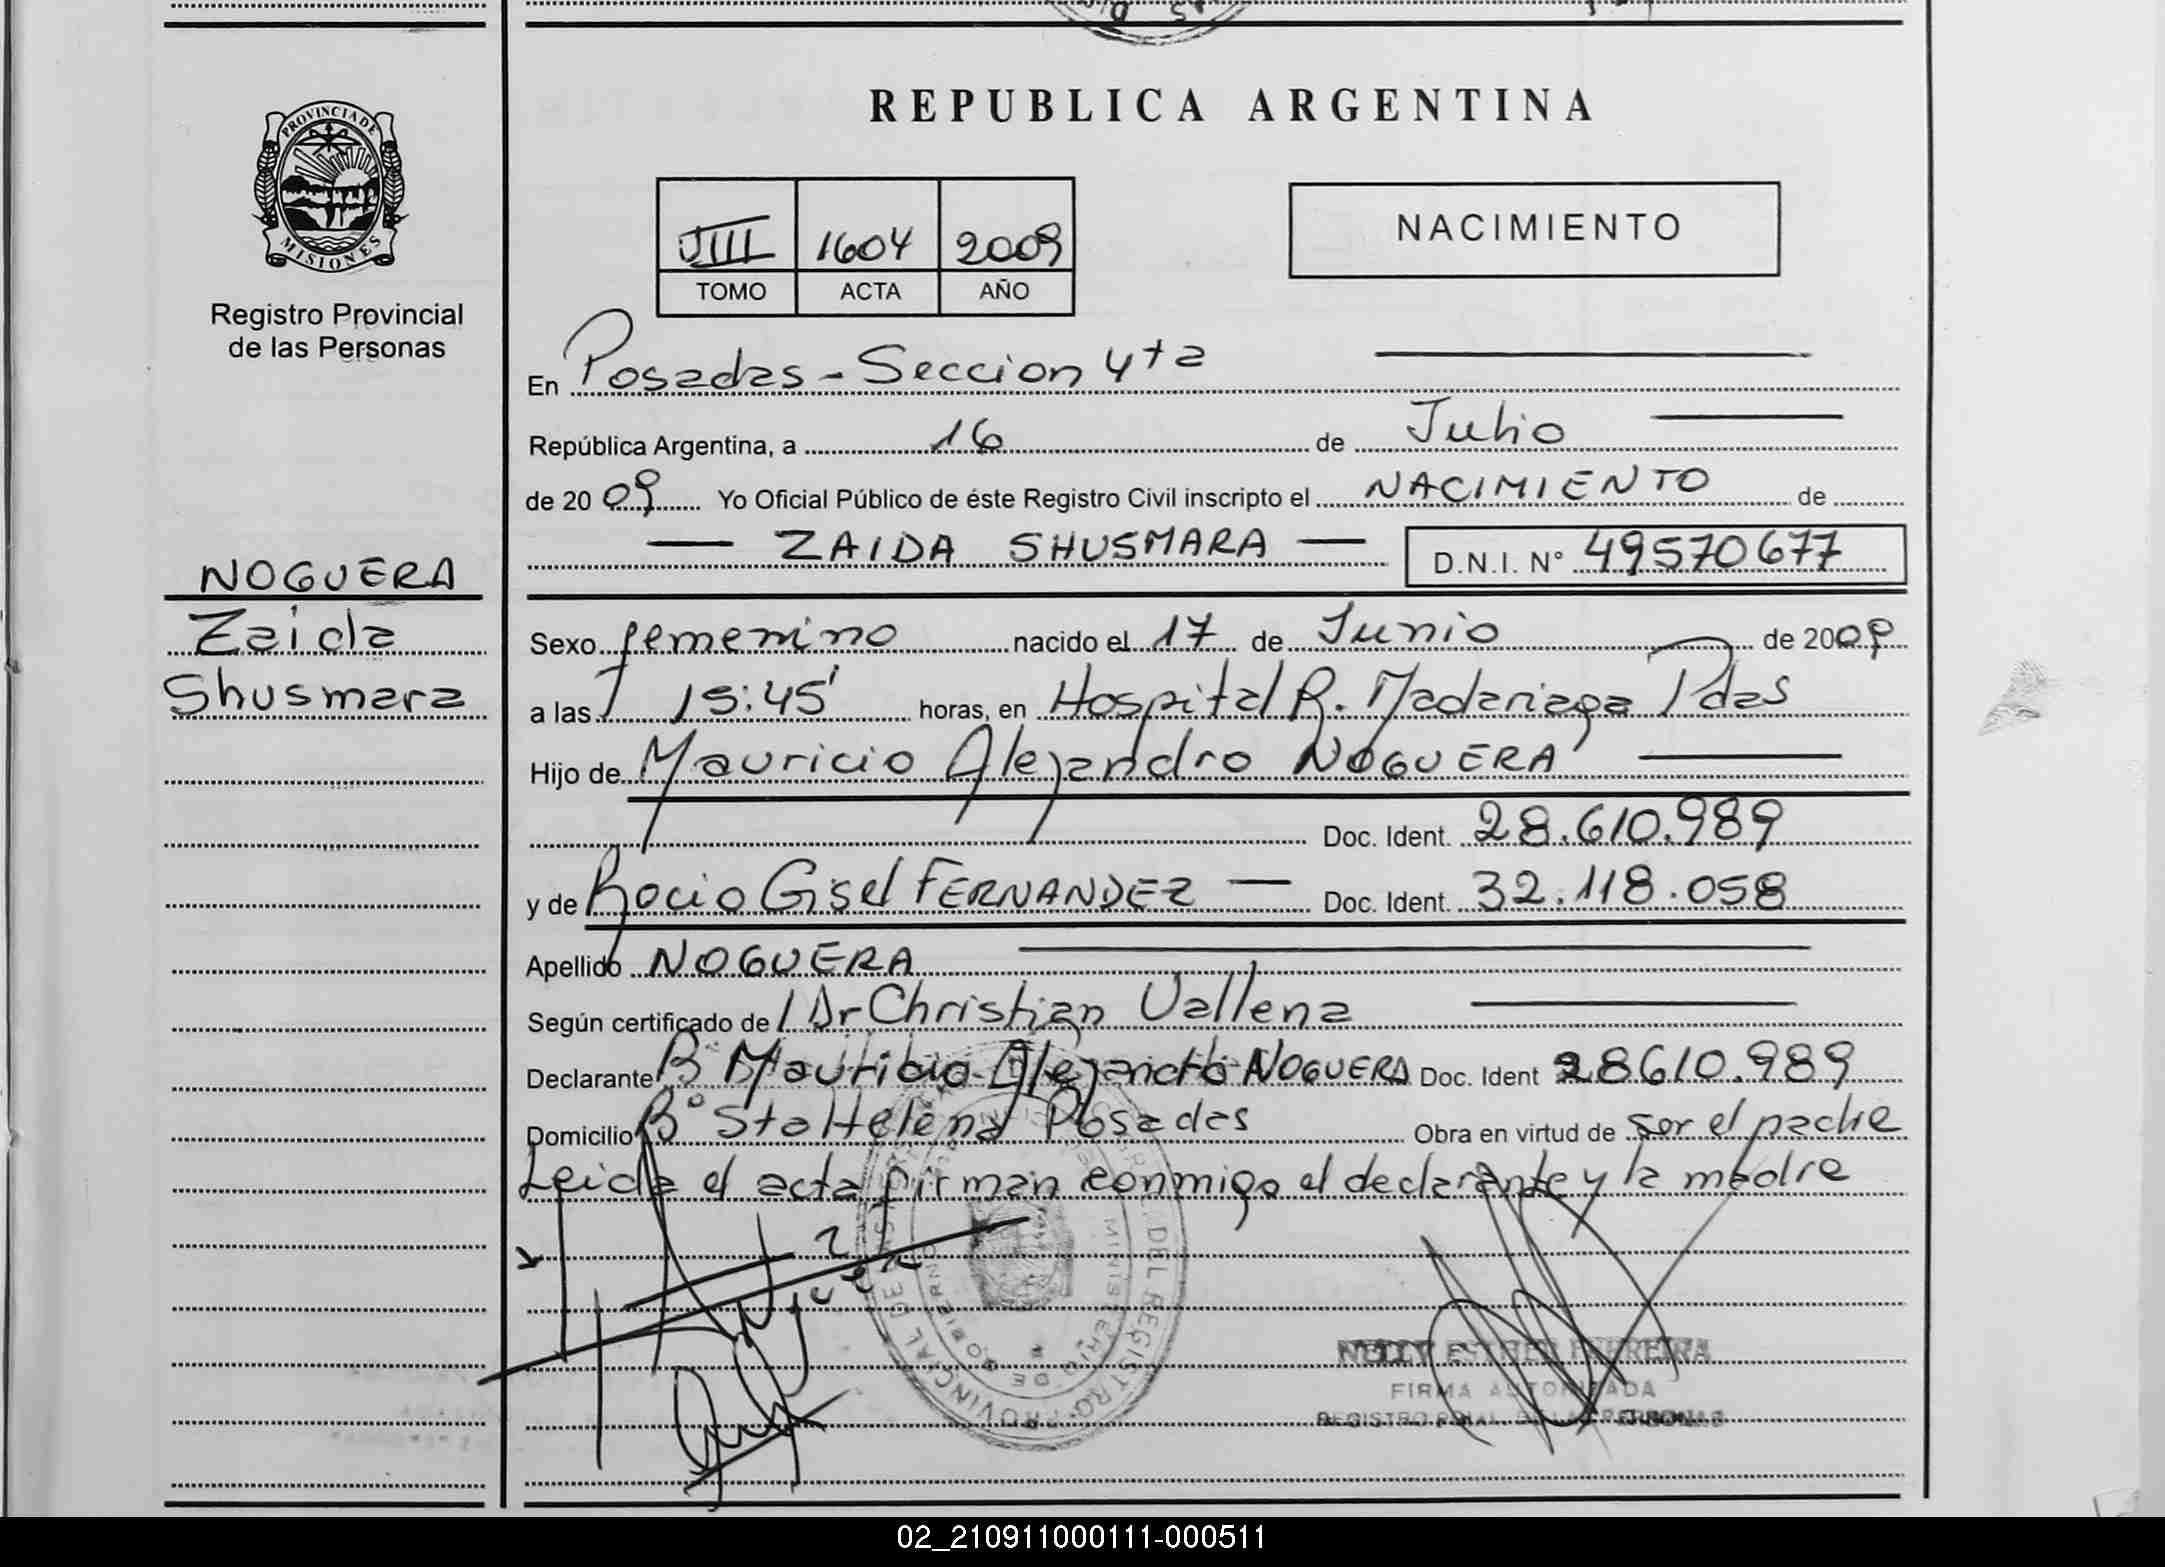 REPUBLICA ARGENTINA
PROVINCIA DE
MISIONES
Registro Provincial
de las Personas
VIII 1604 2009
TOMO ACTA AÑO
NACIMIENTO
En Posadas - Seccion 4ta
República Argentina, a 16 de Julio
de 2009 Yo Oficial Público de éste Registro Civil inscripto el NACIMIENTO de
ZAIDA SHUSMARA D.N.I. N° 49570677
NOGUERA
Zaida
Shusmara
Sexo femenino nacido el 17 de Junio de 2009
a las 15:45' horas, en Hospital R. Madariaga Pdas
Hijo de Mauricio Alejandro NOGUERA
Doc. Ident. 28.610.989
y de Rocio Gisel FERNANDEZ Doc. Ident. 32.118.058
Apellido NOGUERA
Según certificado de Dr Christian Vallena
Declarante Mauricio Alejandro NOGUERA Doc. Ident 28610.989
Domicilio B° Sta Helena Posadas Obra en virtud de ser el padre
Leida el acta firman conmigo el declarante y la madre
REGISTRO PROVINCIAL DE
MINISTERIO DE GOBIERNO
NELLY ESTHER FERREIRA
FIRMA AUTORIZADA
REGISTRO PCIAL. DE LAS PERSONAS
02_210911000111-000511